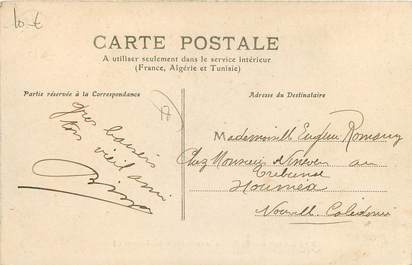 10 €
CARTE POSTALE
A utiliser seulement dans le service intérieur
(France, Algérie et Tunisie)
Partie réservée à la Correspondance
Adresse du Destinataire
gros baisers
ton vieil ami
Mademoiselle Romany
Chez Monsieur au
Tribunal
Nouméa
Nouvelle Calédonie